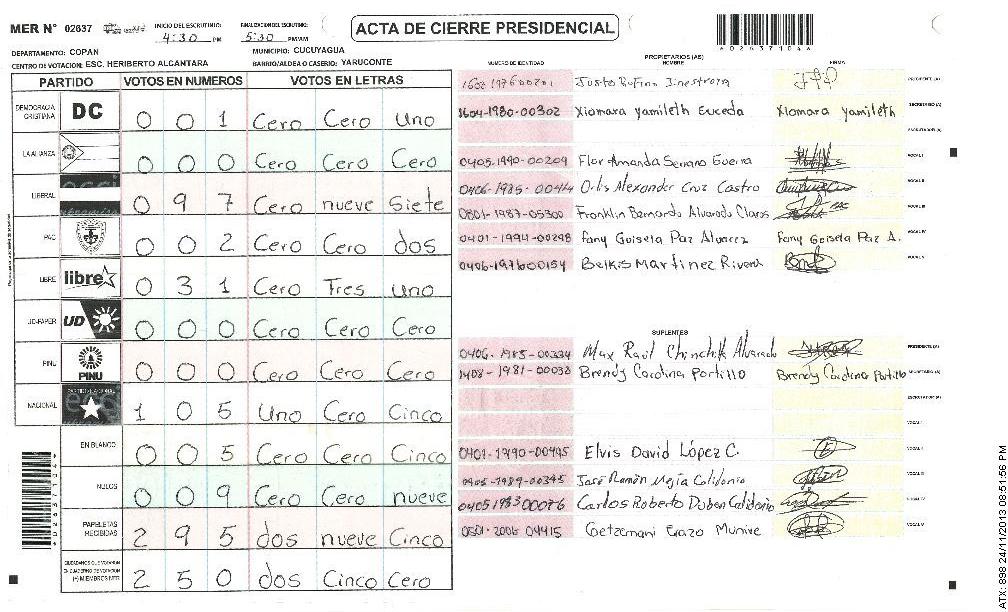 MER N° 02637
INICIO DEL ESCRUTINIO: 4:30 PM
FINALIZACION DEL ESCRUTINIO: 5:30 PM/AM
ACTA DE CIERRE PRESIDENCIAL
DEPARTAMENTO: COPAN
MUNICIPIO: CUCUYAGUA
CENTRO DE VOTACION: ESC. HERIBERTO ALCANTARA
BARRIO/ALDEA O CASERIO: YARUCONTE
PARTIDO VOTOS EN NUMEROS VOTOS EN LETRAS
DEMOCRACIA CRISTIANA DC 0 0 1 Cero Cero Uno
LA ALIANZA 0 0 0 Cero Cero Cero
LIBERAL 0 9 7 Cero nueve Siete
PAC 0 0 2 Cero Cero dos
LIBRE libre 0 3 1 Cero Tres Uno
UD-FAPER UD 0 0 0 Cero Cero Cero
PINU PINU 0 0 0 Cero Cero Cero
NACIONAL 1 0 5 Uno Cero Cinco
EN BLANCO 0 0 5 Cero Cero Cinco
NULOS 0 0 9 Cero Cero nueve
PAPELETAS RECIBIDAS 2 9 5 dos nueve Cinco
CIUDADANOS QUE VOTARON EN CUADERNO DE VOTACION (+) MIEMBROS MER 2 5 0 dos Cinco Cero
PROPIETARIOS (AS)
NUMERO DE IDENTIDAD NOMBRE FIRMA
Justo Rufino PRESIDENTE (A)
1604-1980-00302 Xiomara Yamileth Euceda Xiomara Yamileth SECRETARIO (A)
ESCRUTADOR (A)
0405-1990-00209 Flor Amanda Serrano Guerra VOCAL I
0406-1985-00414 Orlis Alexander Cruz Castro VOCAL II
0801-1987-05300 Franklin Bernardo Alvarado Claros VOCAL III
0401-1994-00298 Fany Goisela Paz Alvarez Fany Goisela Paz A. VOCAL IV
0406-197600154 Belkis Martinez Rivera VOCAL V
SUPLENTES
0406-1985-00334 Max Raúl Chinchilla Alvarado PRESIDENTE (A)
1408-1981-00038 Brendy Carolina Portillo Brendy Carolina Portillo SECRETARIO (A)
ESCRUTADOR (A)
VOCAL I
0401-1990-00495 Elvis David López C. VOCAL II
0405-1989-00345 José Ramón Mejía Calidonio VOCAL III
0405198300076 Carlos Roberto Dubon Calidonio VOCAL IV
0501-2006 04415 Getzemani Erazo Munive VOCAL V
6026371044
ATX: 898 24/11/2013 08:51:56 PM